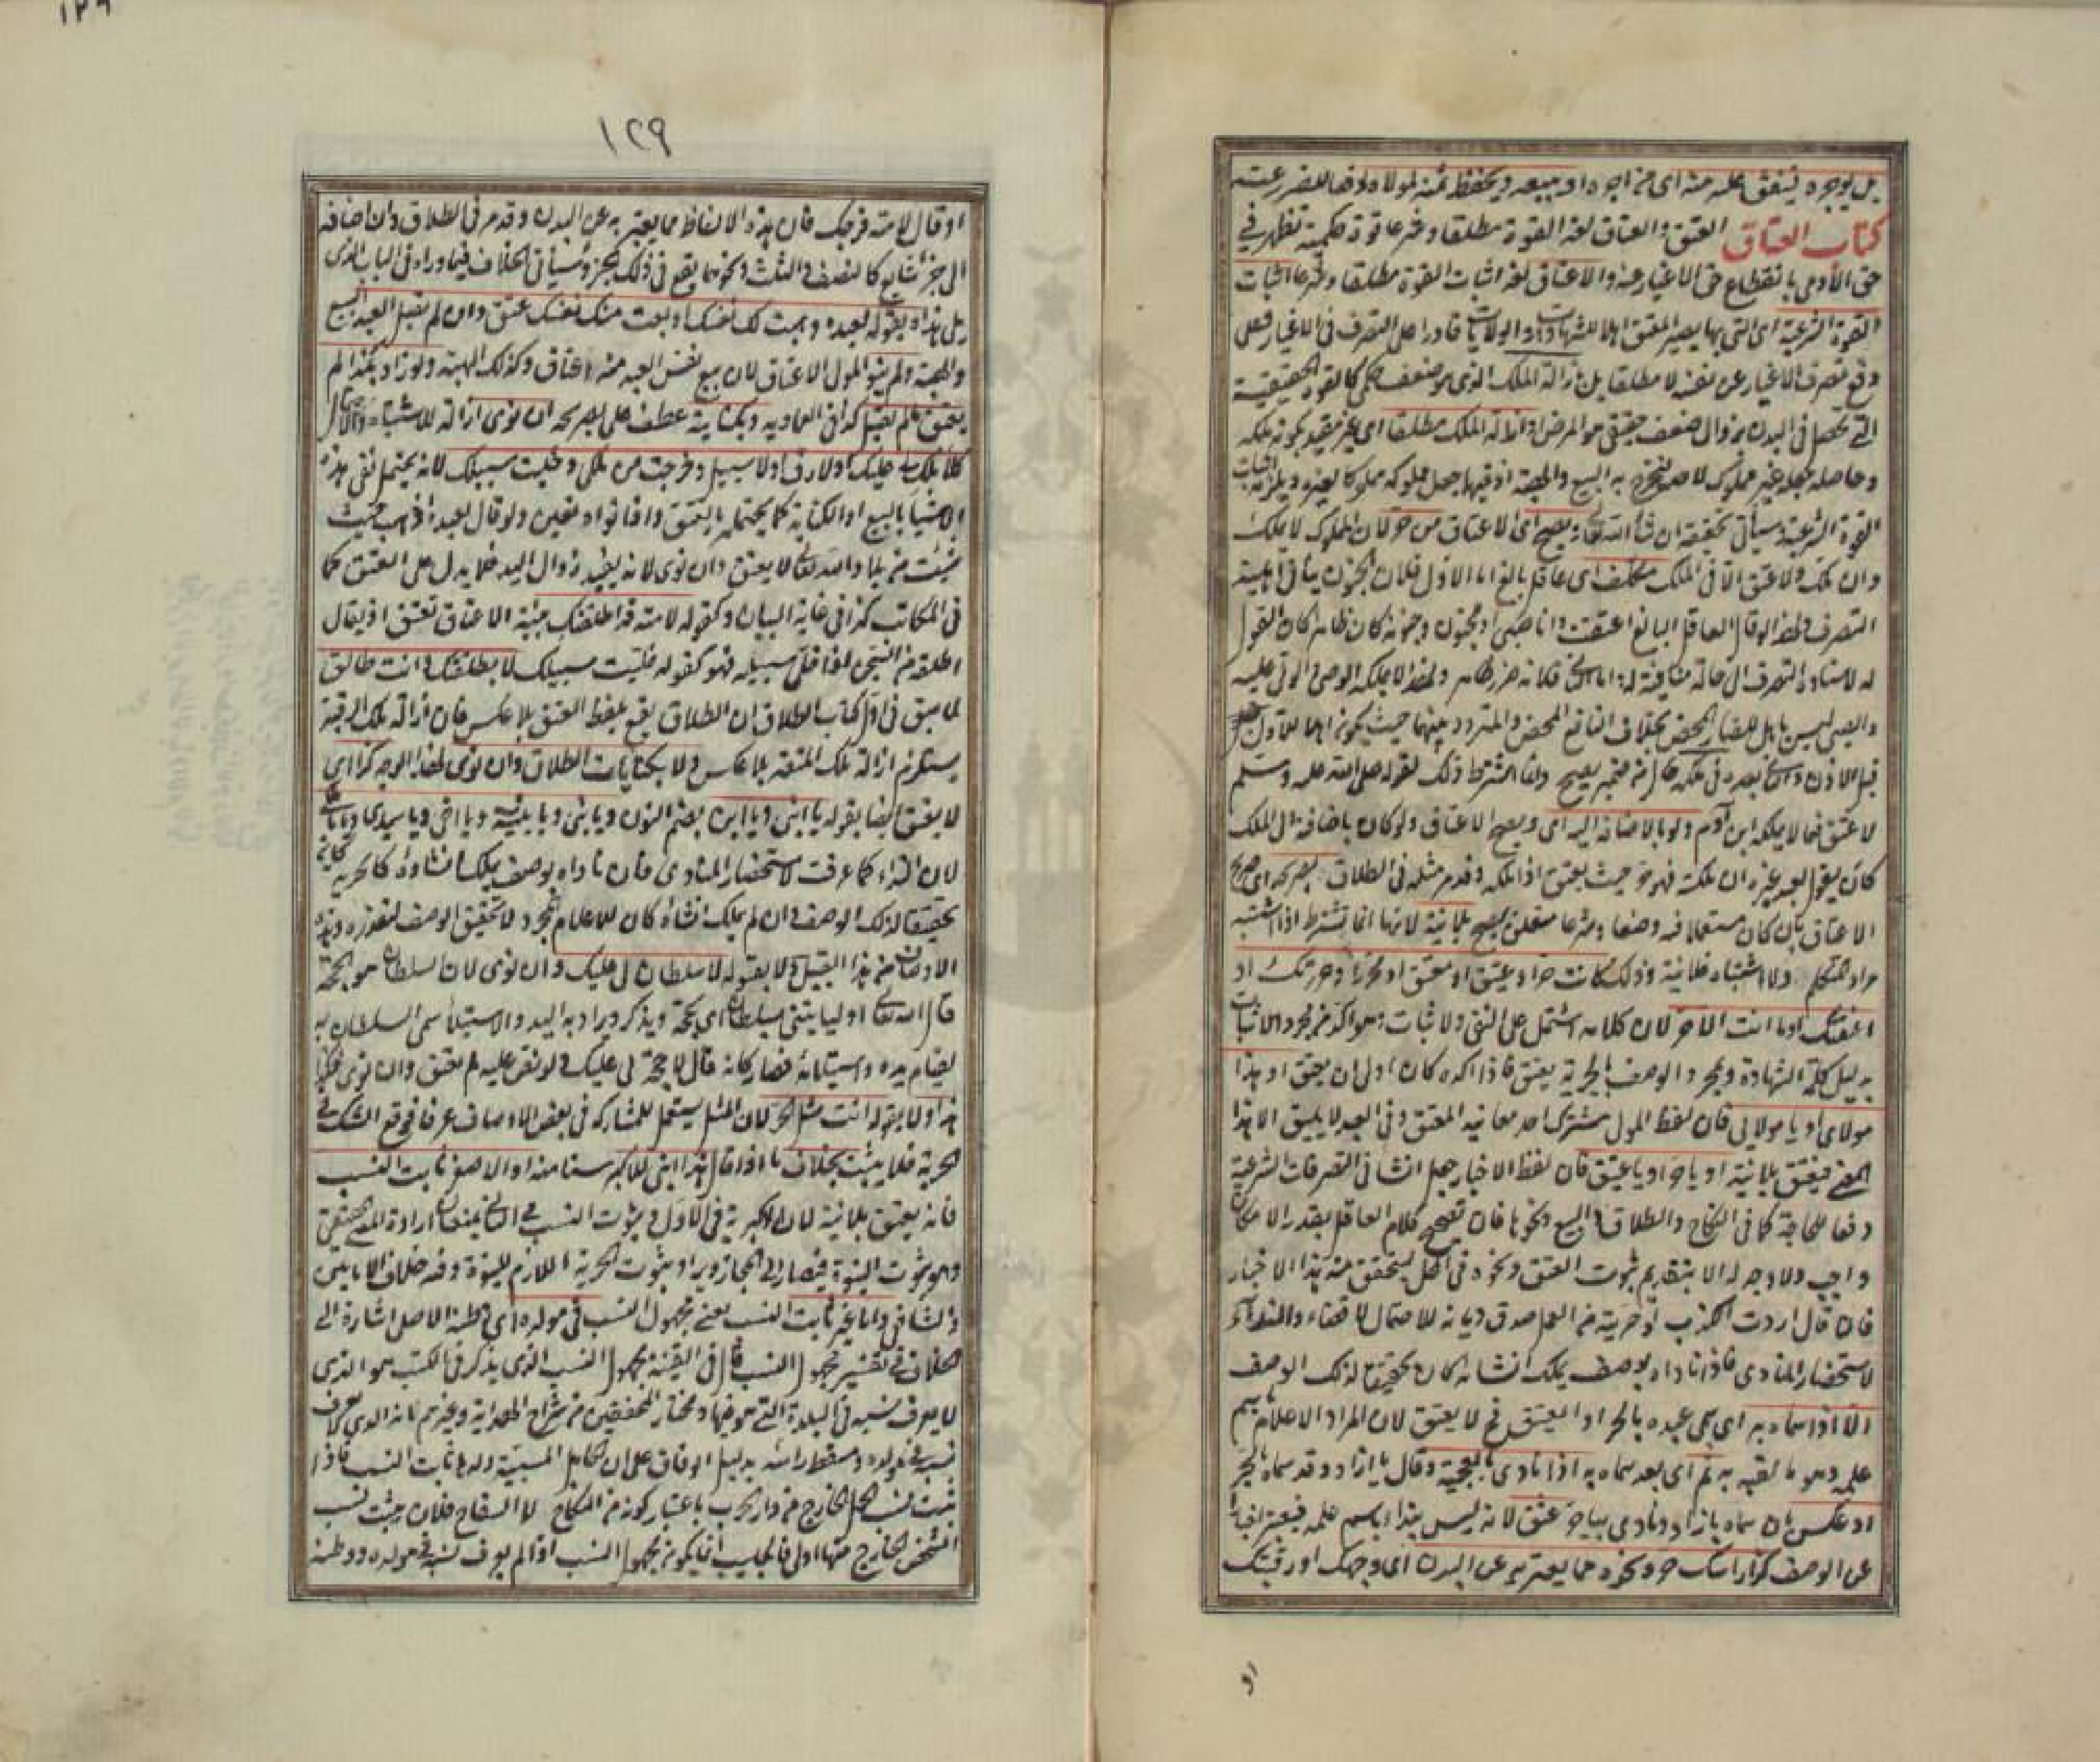 بل يوجره لينفق عليه منه اى من اجره او يبيعه ويحفظ ثمنه لمولاه دفعا للضرر عنه
كتاب العتاق العتق والعتاق لغة القوة مطلقا وشرعا قوة حكمية تظهر في
حق الآدمي بانقطاع حق الاغيار عنه والاعتاق لغة اثبات القوة مطلقا وشرعا اثبات
القوة الشرعية اى التى بها يصير المعتق اهلا للشهادات والولايات قادرا على التصرف فى الاغيار وعلى
دفع تصرف الاغيار عن نفسه لا مطلقا بل بازالة الملك الذى هو ضعف حكمى كالقوة الحقيقية
التى تحصل فى البدن بزوال ضعف حقيقى هو المرض وازالة الملك مطلقا اى غير مقيد بكونه ملكه
وحاصله جعله غير مملوك لاحد فخرج به البيع والهبة اذ فيهما جعل مملوكه مملوكا لغيره ويلزمه اثبات
القوة الشرعية وسيأتى تحقيقه ان شاء الله تعالى يصح اى الاعتاق من حر لان المملوك لا يملك
وان ملك ولا عتق الا فى الملك مكلف اى عاقل بالغ اما الاول فلان الجنون ينافى اهلية
التصرف ولهذا لو قال العاقل البالغ اعتقت وانا صبى او مجنون وجنونه كان ظاهرا كان القول
له لاسناده التصرف الى حالة منافية له واما الثانى فلانه ضرر ظاهر ولهذا لا يملكه الوصى والولى عليه
والصبى ليس باهل للضار المحض بخلاف النافع المحض والمتردد بينهما حيث يكون اهلا للاول
قبل الاذن وللثانى بعده فى ملكه قال من منجز يصح وانما اشترط ذلك لقوله صلى الله عليه وسلم
لا عتق فيما لا يملكه ابن آدم ولو بالاضافة اليه اى ويصح الاعتاق ولو كان باضافته الى الملك
كأن يقول لعبد غيره ان ملكتك فهو حر حيث يعتق اذا ملكه وقد مر مثله فى الطلاق بصريحه اى صريح
الاعتاق بان كان مستعملا فيه وضعا وشرعا متعلق بيصح بلا نية لانها انما تشترط اذا اشتبه
مراد المتكلم ولا اشتباه فلا نية وذلك كانت حر او عتيق او معتق او محرر او حررتك او
اعتقتك او ما انت الا حر لان كلامه اشتمل على النفى والاثبات وهو آكد من مجرد الاثبات
بدليل كلمة الشهادة ومجرد الوصف بالحرية يعتق فاذا اكده كان اولى ان يعتق او هذا
مولاى او يا مولاى فان لفظ المولى مشترك احد معانيه المعتق وفى العبد لا يليق الا هذا
المعنى فيعتق بلا نية او يا حر او يا عتيق فان لفظ الاخبار جعل انشا فى التصرفات الشرعية
دفعا للحاجة كما فى النكاح والطلاق والبيع ونحوها فان تصحيح كلام العاقل بقدر الامكان
واجب ولا وجه له الا بتقديم ثبوت العتق ونحوه فى المحل ليتحقق منه هذا الاخبار
فان قال اردت الكذب او حريته من العمل صدق ديانة للاحتمال لا قضاء والنداء
لاستحضار المنادى فاذا ناداه بوصف يملك انشاءه كان تحقيقا لذلك الوصف
الا اذا سماه به اى سمى عبده بالحر او العتيق فح لا يعتق لان المراد الاعلام باسم
علمه وهو ما لقبه به ثم اى بعد سماه به اذا نادى بالعجمية وقال يا ازاد وقد سماه بالحر
او عكس بان سماه بازاد ونادى بيا حر عتق لانه ليس بنداء باسم علمه فيعتبر اخبارا
عن الوصف كذا راسك حر ونحوه مما يعبر به عن البدن اى وجهك او رقبتك
او
١٢٩
او قال لامته فرجك فان هذه الالفاظ مما يعبر به عن البدن وقد مر فى الطلاق وان اضافه
الى جزء شايع كالنصف والثلث ونحوهما يقع فى ذلك الجزء وسيأتى الخلاف فيما وراءه فى الباب الذى
يلى هذا وبقوله لعبده وهبت لك نفسك او بعت منك نفسك عتق وان لم يقبل العبد البيع
والهبة ولم ينو المولى الاعتاق لان بيع نفس العبد منه اعتاق وكذلك الهبة ولو زاد بكذا لم
يعتق ما لم يقبل كذا فى العمادية وبكنايته عطف على بصريحه ان نوى ازالة للاشتباه والاحتمال
كلا ملك لى عليك ولا رق او لا سبيل وخرجت من ملكى وخليت سبيلك لانه يحتمل نفى هذه
الاشيا بالبيع او الكتابة كما يحتمله بالعتق واذا نواه تعين ولو قال لعبده اذهب حيث
شئت من بلاد الله تعالى لا يعتق وان نوى لانه يفيد زوال اليد فلا يدل على العتق كما
فى المكاتب كذا فى غاية البيان وكقوله لامته قد اطلقتك بنية الاعتاق تعتق اذ يقال
اطلقه من السجن اذا خلى سبيله فهو كقوله خليت سبيلك لا بطلقتك وانت طالق
لما سبق فى اول كتاب الطلاق ان الطلاق يقع بلفظ العتق بلا عكس فان ازالة ملك الرقبة
يستلزم ازالة ملك المتعة بلا عكس ولا بكنايات الطلاق وان نوى لهذا الوجه كذا اى
لا يعتق ايضا بقوله يا ابنى ويا ابن بضم النون ويا بنى ويا بنية ويا اخى ويا سيدى
لان النداء كما عرفت لاستحضار المنادى فان ناداه بوصف يملك انشاءه كالحرية كان
تحقيقا لذلك الوصف وان لم يملك انشاءه كان للاعلام المجرد لا تحقيق الوصف لتعذره وهذه
الاوصاف من هذا القبيل ولا بقوله لا سلطان لى عليك وان نوى لان السلطان هو الحجة
قال الله تعالى او ليأتينى بسلطان اى بحجة ويذكر ويراد به اليد والاستيلاء سمى السلطان به
لقيام يده واستيلائه فصار كانه قال لا حجة لى عليك ولو نص عليه لم يعتق وان نوى فكذا
هذا ولا بقوله انت مثل الحر لان المثل يستعمل للمشاركة فى بعض الاوصاف عرفا فوقع الشك فى
الحرية فلا يثبت بخلاف ما اذا قال هذا ابنى للاكبر سنا منه او الاصغر ثابت النسب
فانه يعتق بلا نية لان الاكبرية فى الاول وثبوت النسب فى الثانى يمنعان ارادة المعنى الحقيقى
وهو ثبوت البنوة فيصار الى المجاز ويراد ثبوت الحرية اللازم للبنوة وفيه خلاف الامامين
والشافعى واما غير ثابت النسب يعنى مجهول النسب فى مولده اى وطنه الاصلى اشارة الى
الخلاف فى تفسير مجهول النسب قال فى القنية مجهول النسب الذى يذكر فى الكتب هو الذى
لا يعرف نسبه فى البلدة التى هو فيها ومختار المحققين من شراح الهداية وغيرهم انه الذى لا يعرف
نسبه فى مولده ومسقط راسه بدليل الوفاق على ان الحامل المسبية ولدها ثابت النسب فاذا
ثبت نسب الحمل الخارج من دار الحرب باعتبار كونه من النكاح لا السفاح فلان يثبت نسب
الشخص الخارج منها اولى فالجليب انما يكون مجهول النسب اذا لم يعرف نسبه فى مولده ووطنه